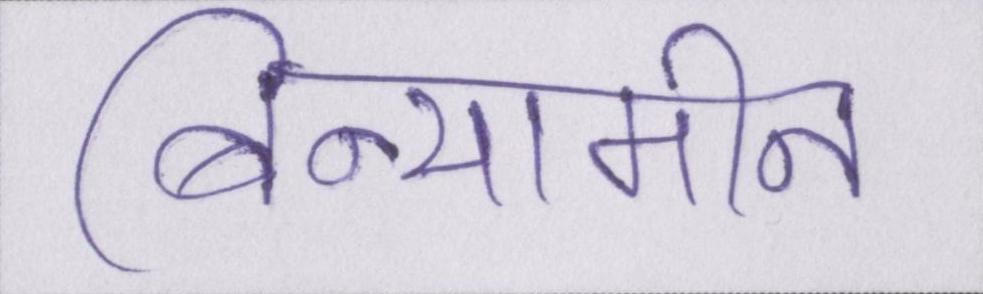 बिन्यामीन